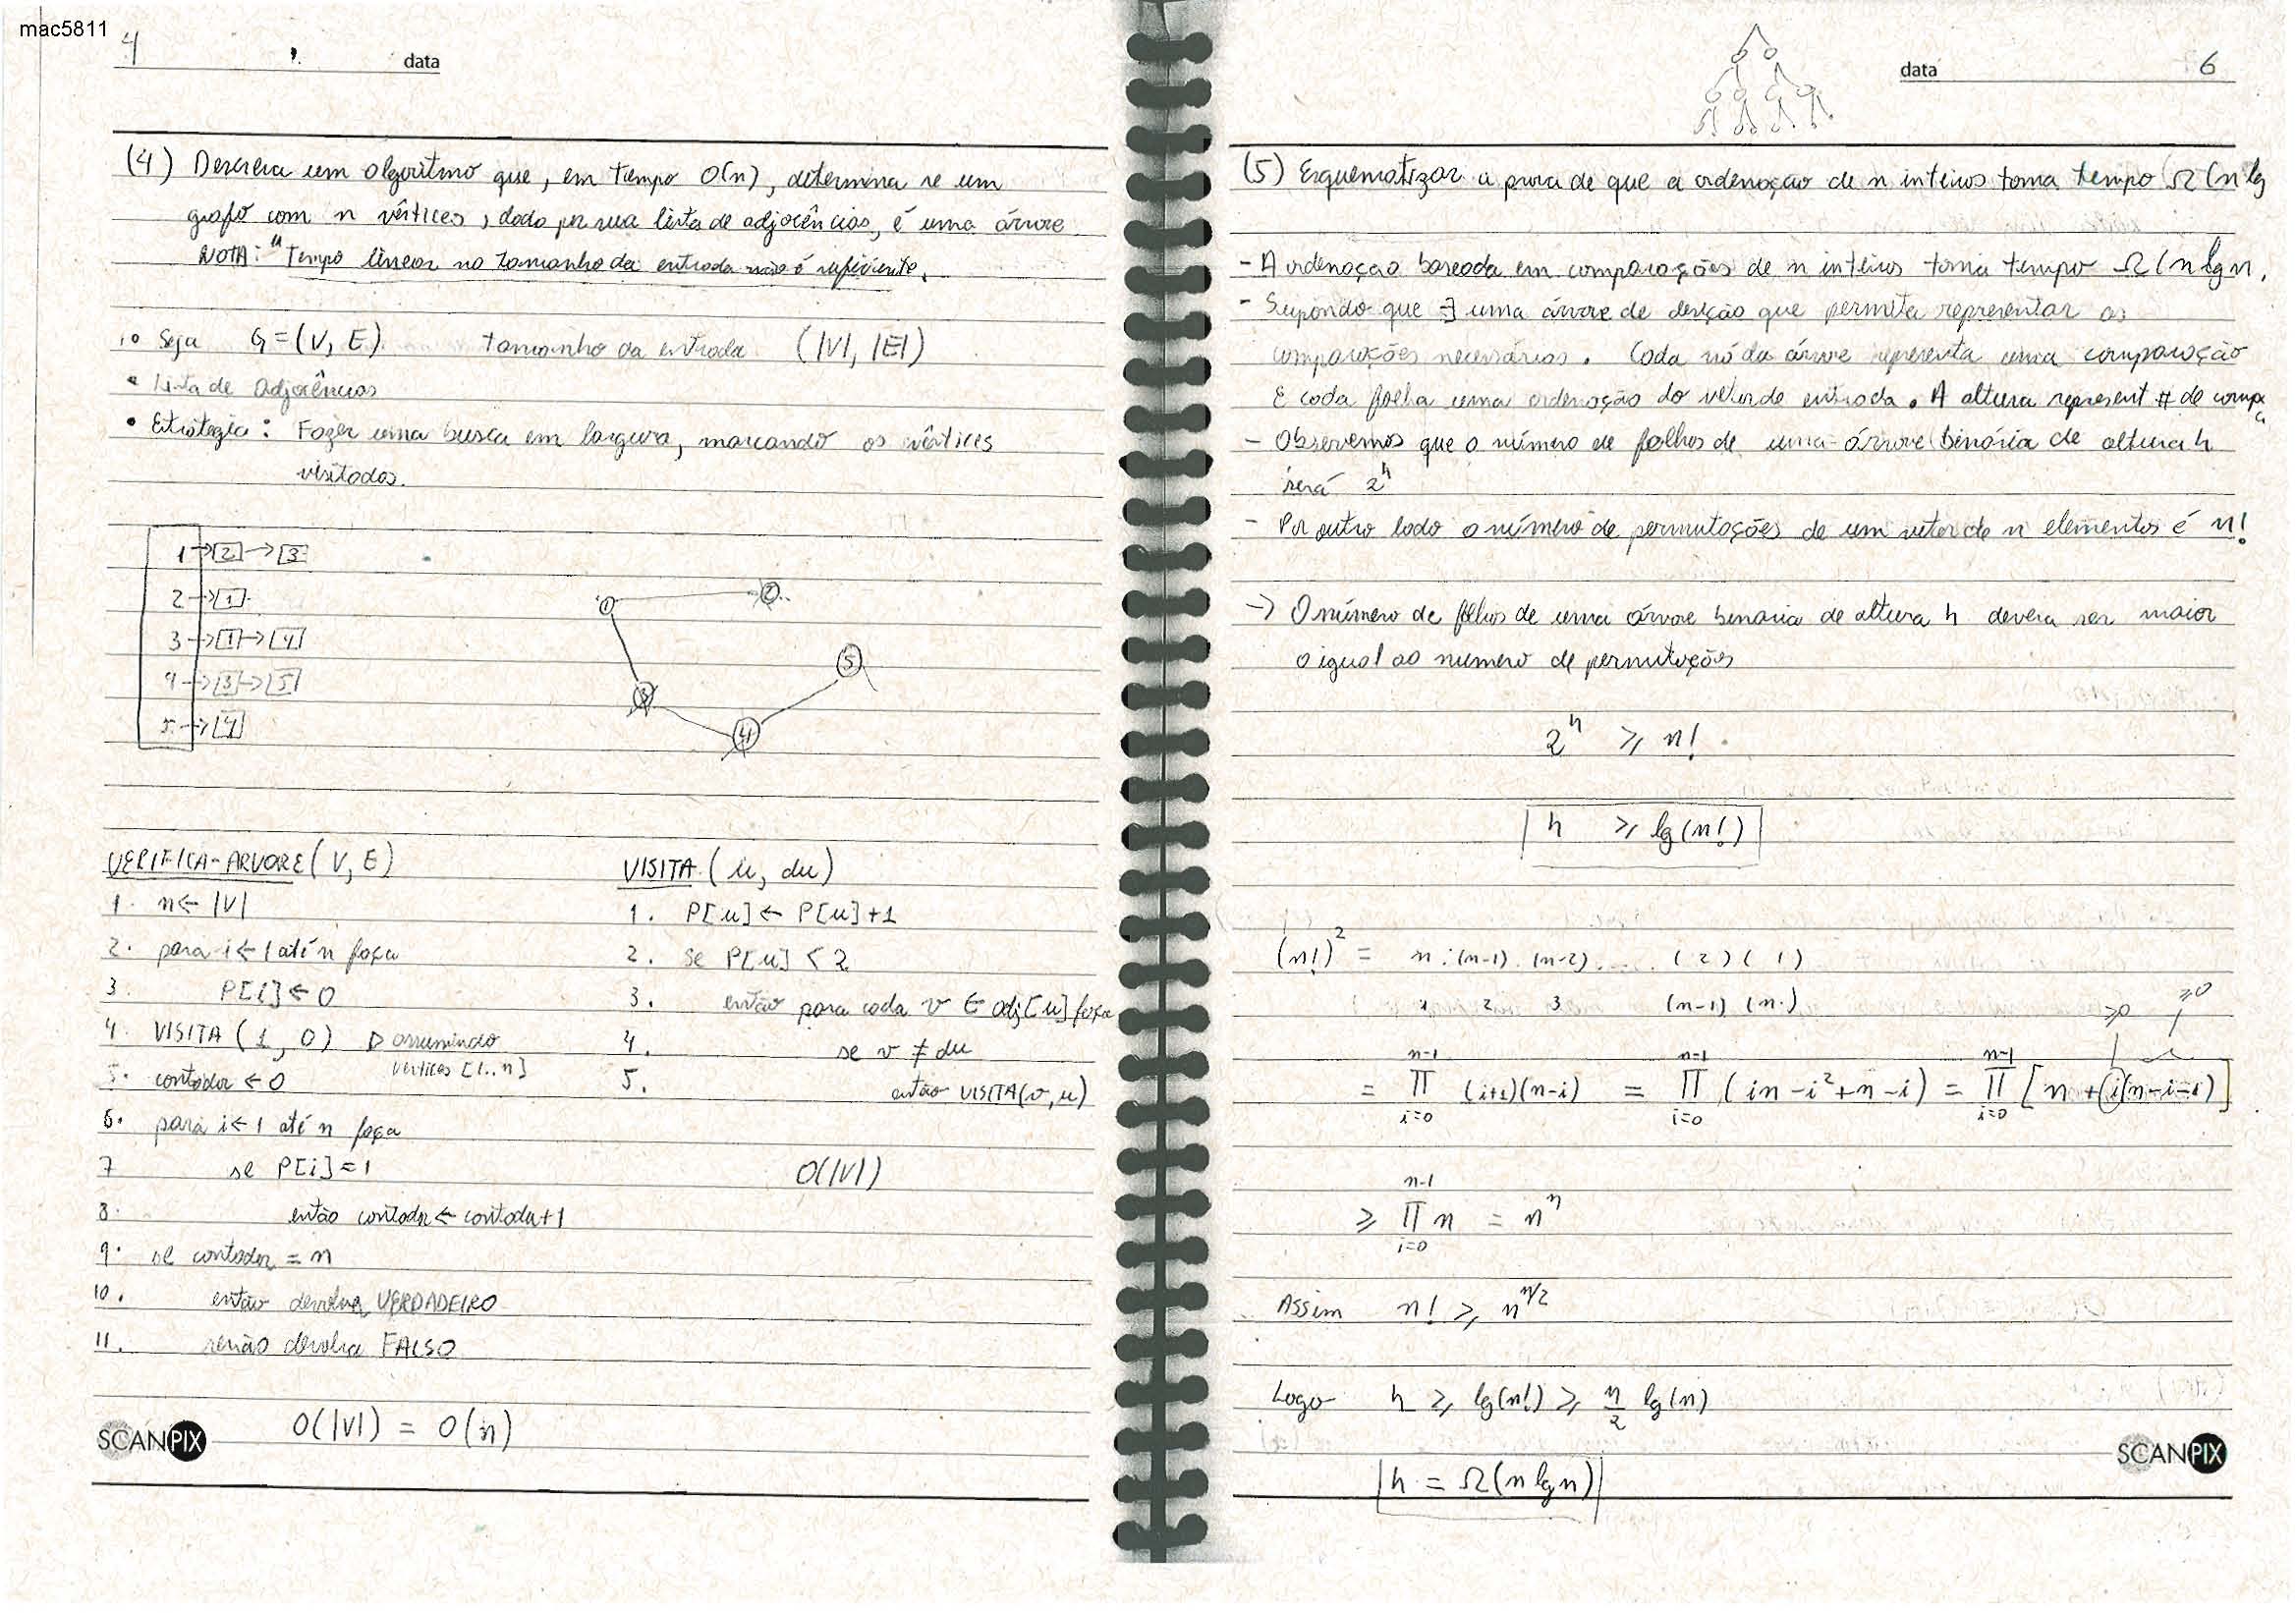 mac5811
4
data
(4) Descreva um algoritmo que, em tempo O(n), determina se um
grafo com n vértices, dado por sua lista de adjacências, é uma árvore
NOTA: "Tempo linear no tamanho da entrada não é suficiente.
Seja G=(V, E) tamanho da entrada (|V|, |E|)
• Lista de Adjacências
• Estrategia: Fazer uma busca em largura, marcando os vértices
visitados.
1 → 2 → 3
2 → 1
3 → 1 → 4
4 → 3 → 5
5 → 4
1 2 3 4 5
VERIFICA-ARVORE (V, E)
1. n ← |V|
2. para i ← 1 até n faça
3. P[i] ← 0
4. VISITA (1, 0) ▷ assumindo
vertices [1..n]
5. contador ← 0
6. para i ← 1 até n faça
7 se P[i] = 1
8. então contador ← contador+1
9. se contador = n
10. então devolva VERDADEIRO
11. senão devolva FALSO
O(|V|) = O(n)
VISITA (u, du)
1. P[u] ← P[u]+1
2. se P[u] < 2
3. então para cada v ∈ adj[u] faça
4. se v ≠ du
5. então VISITA(v, u)
O(|V|)
SCANPIX
data 6
(5) Esquematizar a prova de que a ordenação de n inteiros toma tempo Ω(n lg
- A ordenação baseada em comparações de n inteiros toma tempo Ω(n lg n,
- Supondo que ∃ uma árvore de decição que permita representar as
comparações necessárias. Cada nó da árvore representa uma comparação
E cada folha uma ordenação do vetor de entrada. A altura represent # de compa
- Observemos que o número de folhas de uma árvore binária de altura h
será 2^h
- Por outro lado o número de permutações de um vetor de n elementos é n!
→ O número de folhas de uma árvore binaria de altura h devera ser maior
o igual ao numero de permutações
2^h ≥ n!
h ≥ lg(n!)
(n!)^2 = n . (n-1) . (n-2) . ... . (2) (1)
1 2 3 (n-1) (n.)
= ∏_{i=0}^{n-1} (i+1)(n-i) = ∏_{i=0}^{n-1} (in - i² + n - i) = ∏_{i=0}^{n-1} [n + i(n-i-1)]
≥0 ≥0
≥ ∏_{i=0}^{n-1} n = n^n
Assim n! ≥ n^{n/2}
Logo h ≥ lg(n!) ≥ n/2 lg(n)
h = Ω(n lg n)
SCANPIX